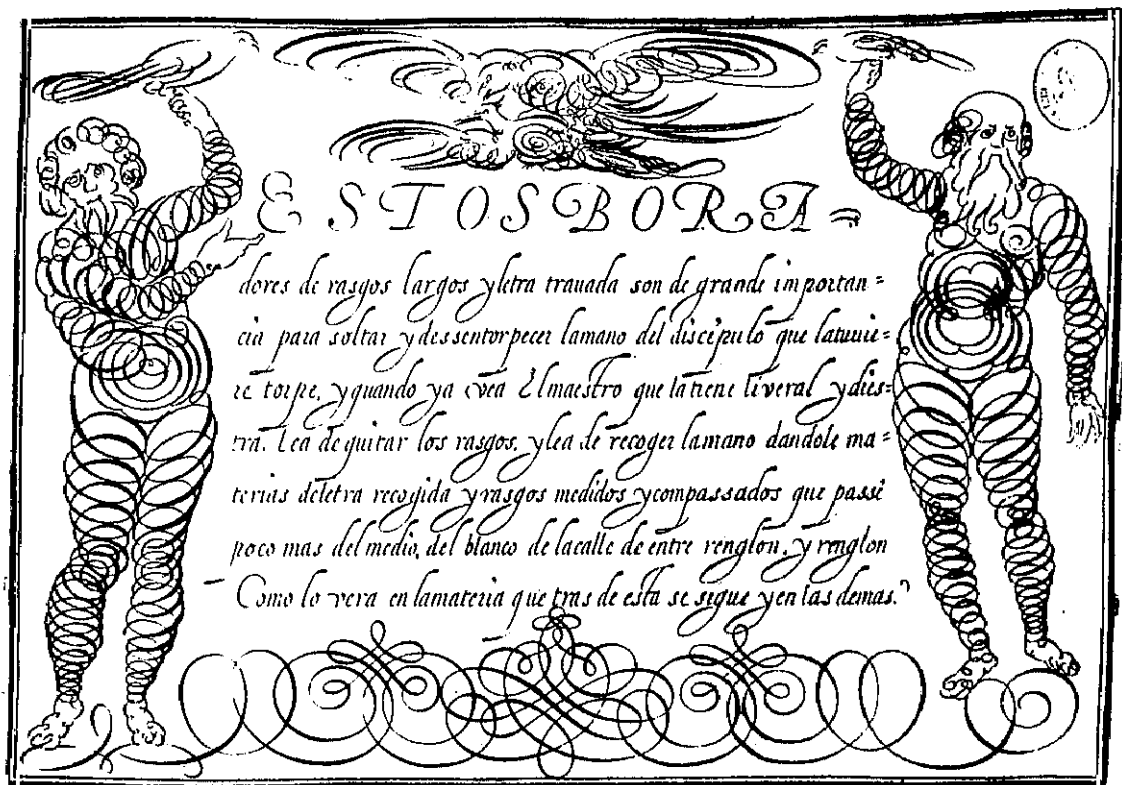 ESTOSBORA=
dores de rasgos largos y letra trauada son de grande importan=
cia para soltar y dessentorpecer lamano del discipulo que latuuie=
re torpe, y quando ya vea El maestro que la tiene liveral y dies=
tra. Lea de quitar los rasgos, y lea de recoger lamano dandole ma=
terias deletra recogida y rasgos medidos y compassados que passē
poco mas del medio, del blanco de lacalle de entre renglon, y renglon
Como lo vera en lamateria que tras de esta se sigue y en las demas.